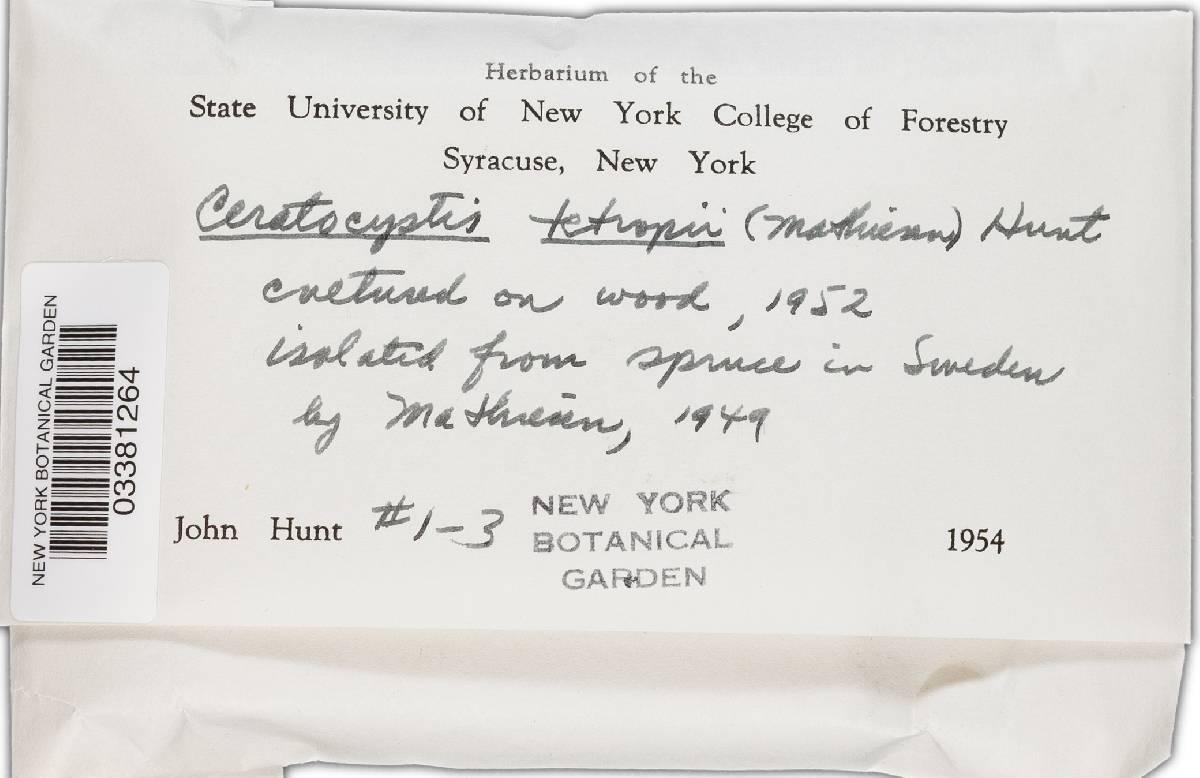 Herbarium of the
State University of New York College of Forestry
Syracuse, New York
Ceratocystis tetropii (Mathiesen) Hunt
cultured on wood, 1952
isolated from spruce in Sweden
by Mathiesen, 1949
John Hunt #1-3
NEW YORK
BOTANICAL
GARDEN
1954
NEW YORK BOTANICAL GARDEN
03381264